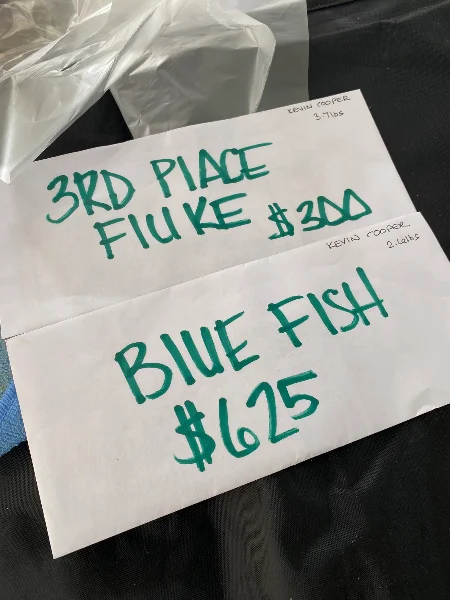 KEVIN COOPER
3.7lbs
3RD PLACE
FLUKE $300
KEVIN COOPER
2.6lbs
BLUE FISH
$625